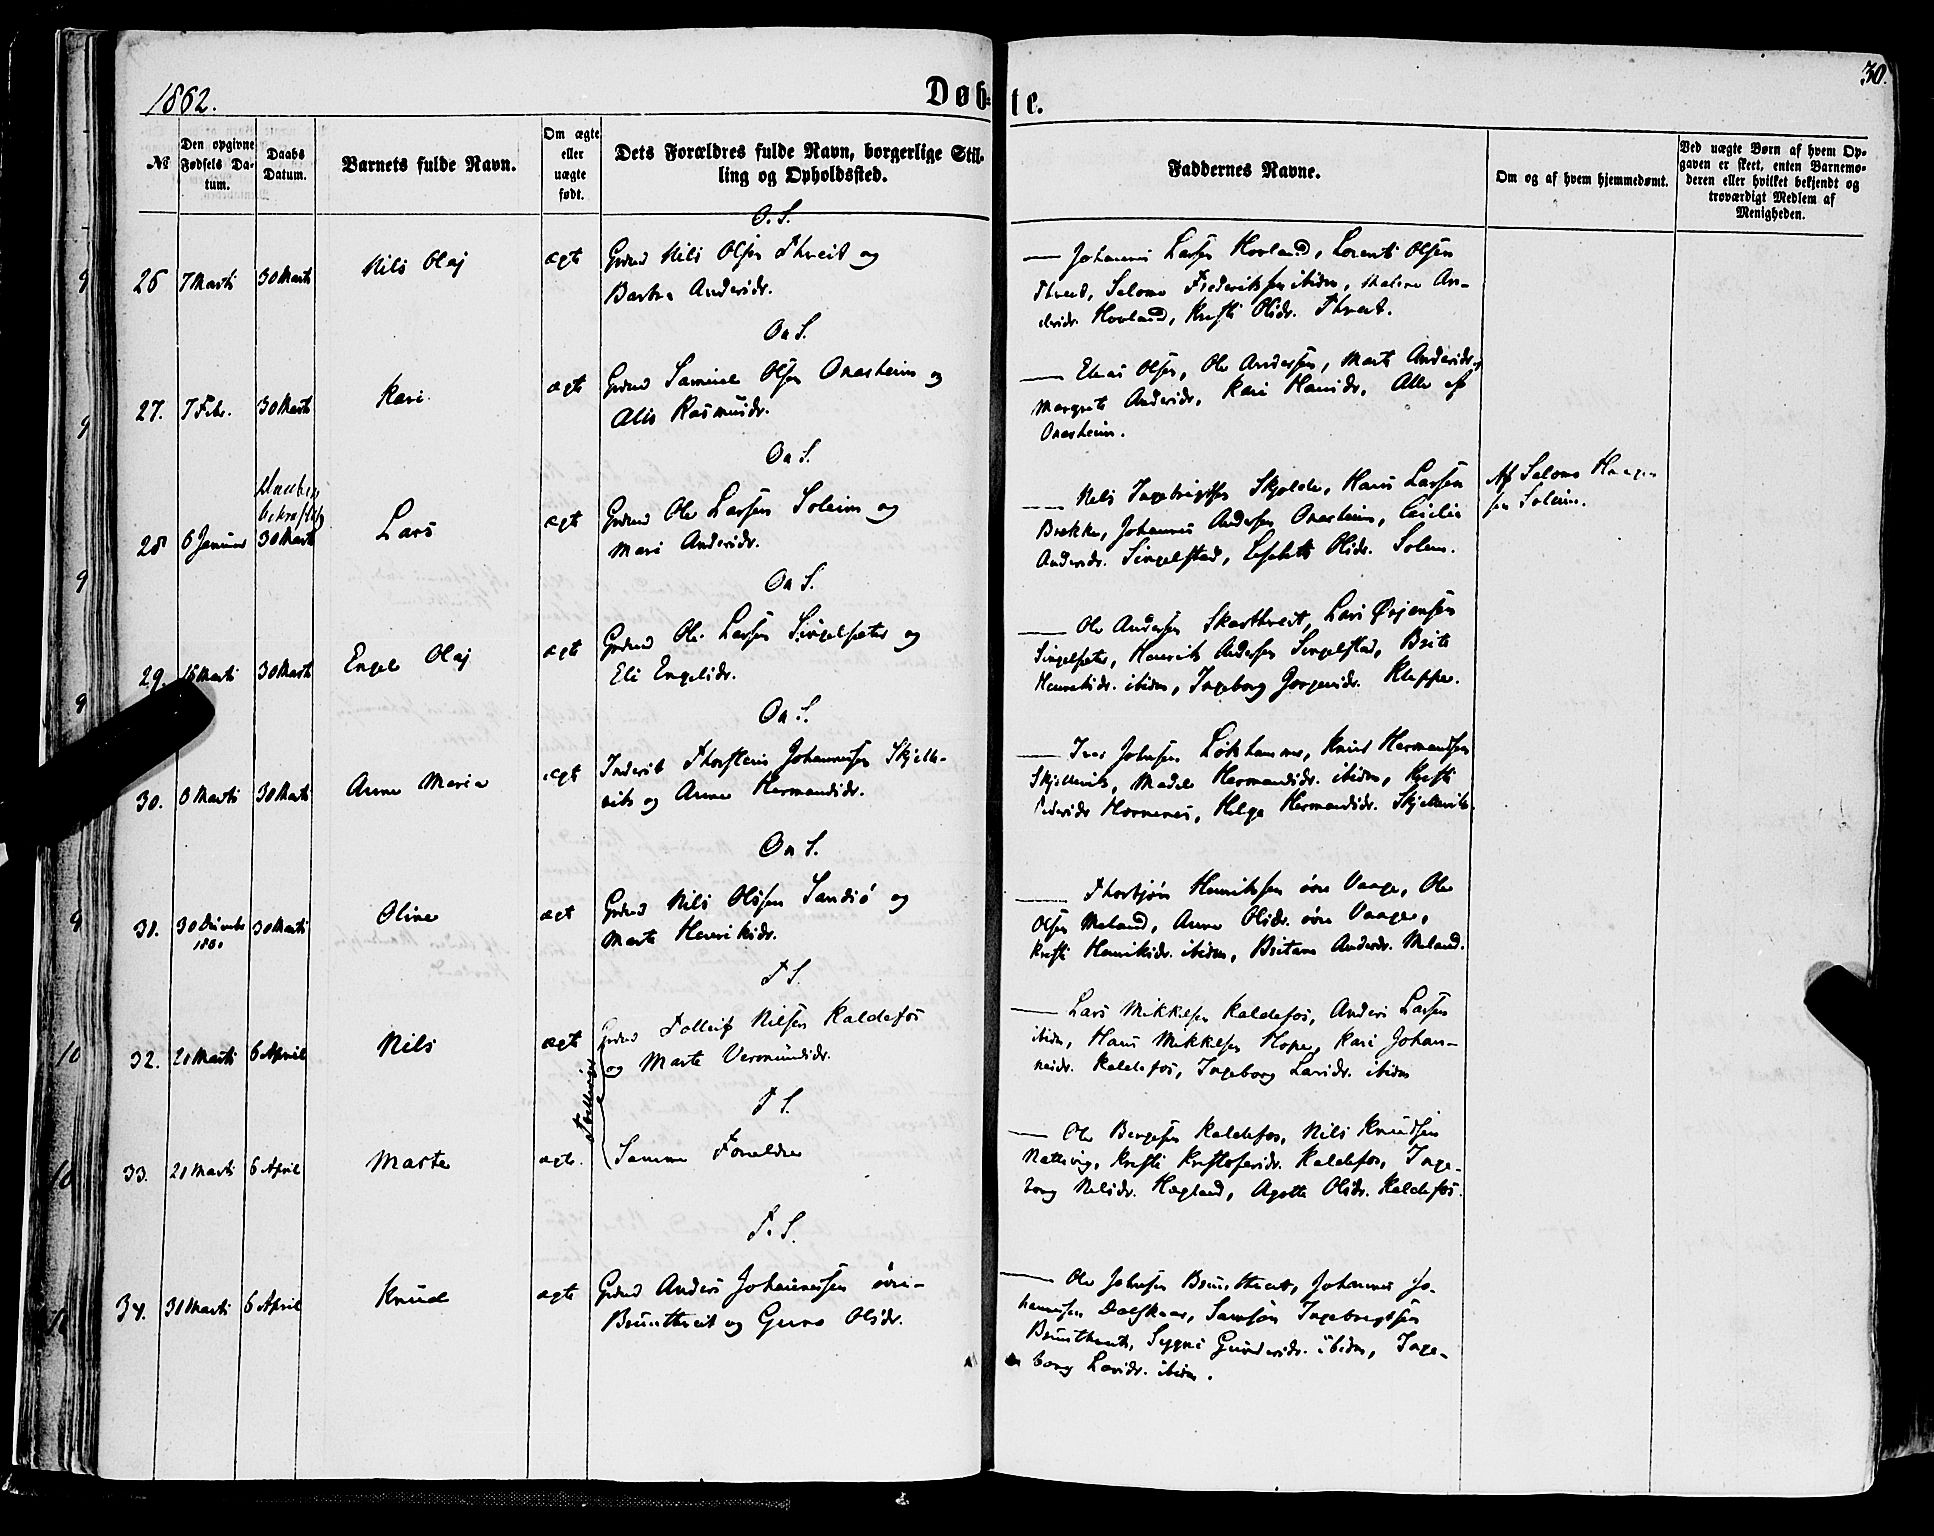 1862.
Døbte.
30.
№
Den opgivne Fødsels Datum.
Daabs Datum.
Barnets fulde Navn.
Om ægte eller uægte født.
Dets Forældres fulde Navn, borgerlige Stilling og Opholdssted.
Faddernes Navne.
Om og af hvem hjemmedøbt.
Ved uægte Børn af hvem Opgaven er skeet, enten Barnemoderen eller hvilket bekjendt og troværdigt Medlem af Menigheden.
O. S.
26 7 Marti 30 Marti Nils Olaj ægte Grdmd Nils Olsen Thveit og
Barbra Andersdr.
— Johannes Larsen Hovland, Lorents Olsen
Thveit, Salomo Frederiksen ibidm, Malene An-
dersdr. Hovland, Kristi Olsdr. Thveit.
On S.
27. 7 Febr. 30 Marti Kari ægte Grdmd Samuel Olsen Onarheim og
Alis Rasmusdr.
— Elias Olsen, Ole Andersen, Marte Andersdr.,
Margrete Andersdr., Kari Hansdr., Alle af
Onarheim.
On S.
28 6 Januar 30 Marti Lars ægte Grdmd Ole Larsen Soleim og
Mari Andersdr.
— Nels Ingebrigtsen Skjolde, Hans Larsen
Brekke, Johannes Andersen Onarheim, Cecilie
Andersdr. Singelstad, Lisbeth Olsdr. Solem.
Af Salomo Haagen-
sen Soleim.
On S.
29. 16 Marti 30 Marti Engel Olaj ægte Grdmd Ole Larsen Singelsæter og
Eli Engelsdr.
— Ole Andersen Skarthveit, Lars Ørjansen
Singelsæter, Henrik Andersen Singelstad, Brite
Henriksdr. ibidm, Ingeborg Gorgensdr. Kleppe.
On S.
30. 8 Marti 30 Marti Anne Maria ægte Inderst Thorstein Johannesen Skjelle-
vik og Anne Hermandsdr.
— Iver Johnsen Løkhammer, Knud Hermandsen
Skjellevik, Madele Hermandsdr. ibidm, Kristi
Pedersdr Hornenes, Helga Hermandsdr. Skjellevik.
On S.
31. 30 Decembr 1861 30 Marti Oline ægte Grdmd Nils Olsen Sandsø og
Marte Henriksdr.
— Thorbjørn Henriksen øvre Vaage, Ole
Olsen Meland, Anne Olsdr. øvre Vaage,
Kristi Henriksdr. ibidm, Britane Andersdr. Meland.
T S.
32. 21 Marti 6 April Nils ægte Grdmd Tolleif Nilsen Kaldefos
og Marte Vermundsdr.
— Lars Mikkelsen Kaldefos, Anders Larsen
ibidm, Hans Mikkelsen Hope, Kari Johan-
nesdr. Kaldefos, Ingeborg Larsdr. ibidm
Tvillinger
T S.
33. 21 Marti 6 April Marte ægte. Samme Forældre
— Ole Bergesen Kaldefos, Nils Knudsen
Nattevig, Kristi Kristofersdr. Kaldefos, Inge-
borg Nelsdr. Hegland, Agatte Olsdr. Kaldefos.
T. S.
34. 31 Marti 6 April Knud ægte Grdmd Anders Johannesen øvre-
Bruntthveit og Guro Olsdr.
— Ole Johnsen Bruntthveit, Johannes Jo-
hannesen Dalskaar, Samson Ingebrigtsen
Bruntthveit, Sygni Gundersdr. ibidm, Inge-
borg Larsdr. ibidm.